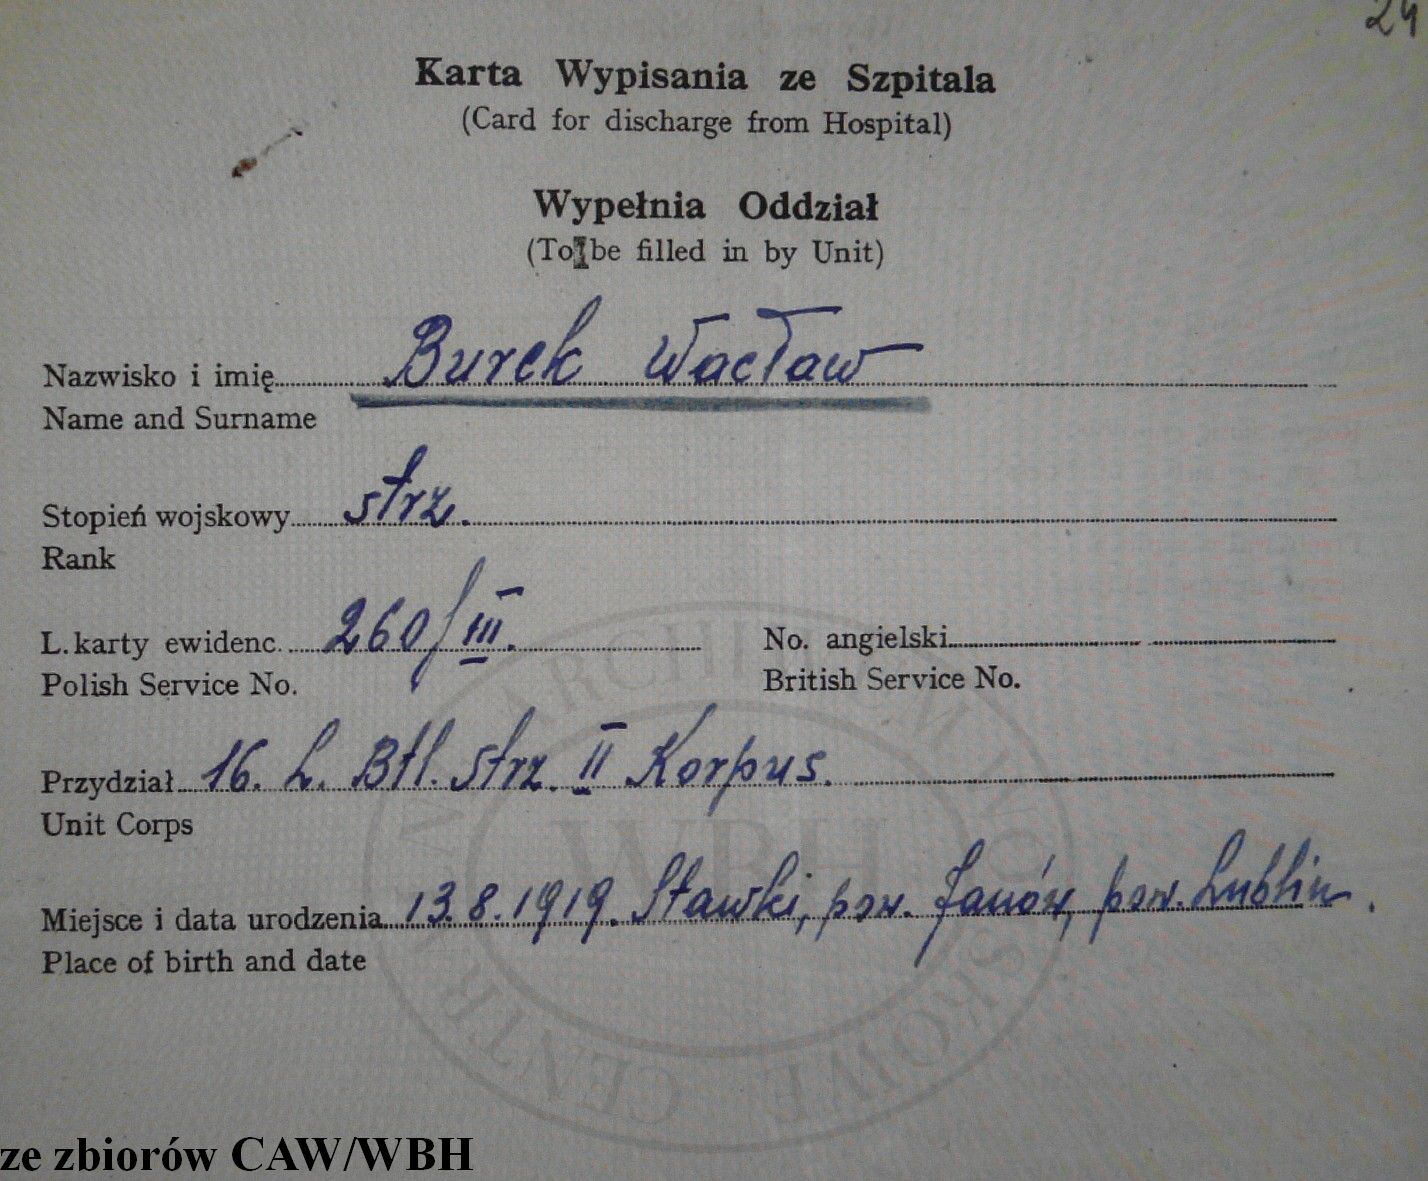 24
Karta Wypisania ze Szpitala
(Card for discharge from Hospital)
Wypełnia Oddział
(To be filled in by Unit)
Nazwisko i imię Burek Wacław
Name and Surname
Stopień wojskowy strz.
Rank
L. karty ewidenc. 260/III. No. angielski
Polish Service No. British Service No.
Przydział 16. L. Btl. Strz. II Korpus.
Unit Corps
Miejsce i data urodzenia 13.8.1919. Stawki, pow. Janów, pow. Lublin.
Place of birth and date
CENTRALNE ARCHIWUM WOJSKOWE
WBH
ze zbiorów CAW/WBH